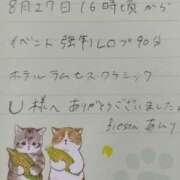 8月27日 16時頃から
イベント 強制ILOプ90分
ホテルラムセスクラシック
U様へ ありがとうございました
fiesta あんり